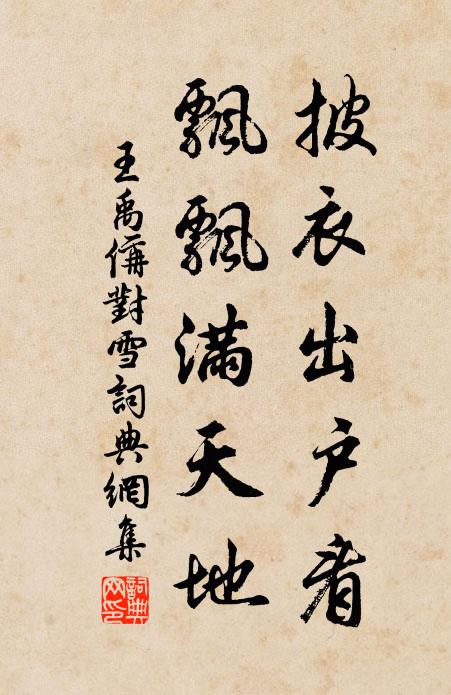 披衣出户看
飄飄滿天地
王禹偁對雪詞典網集
詞典網印